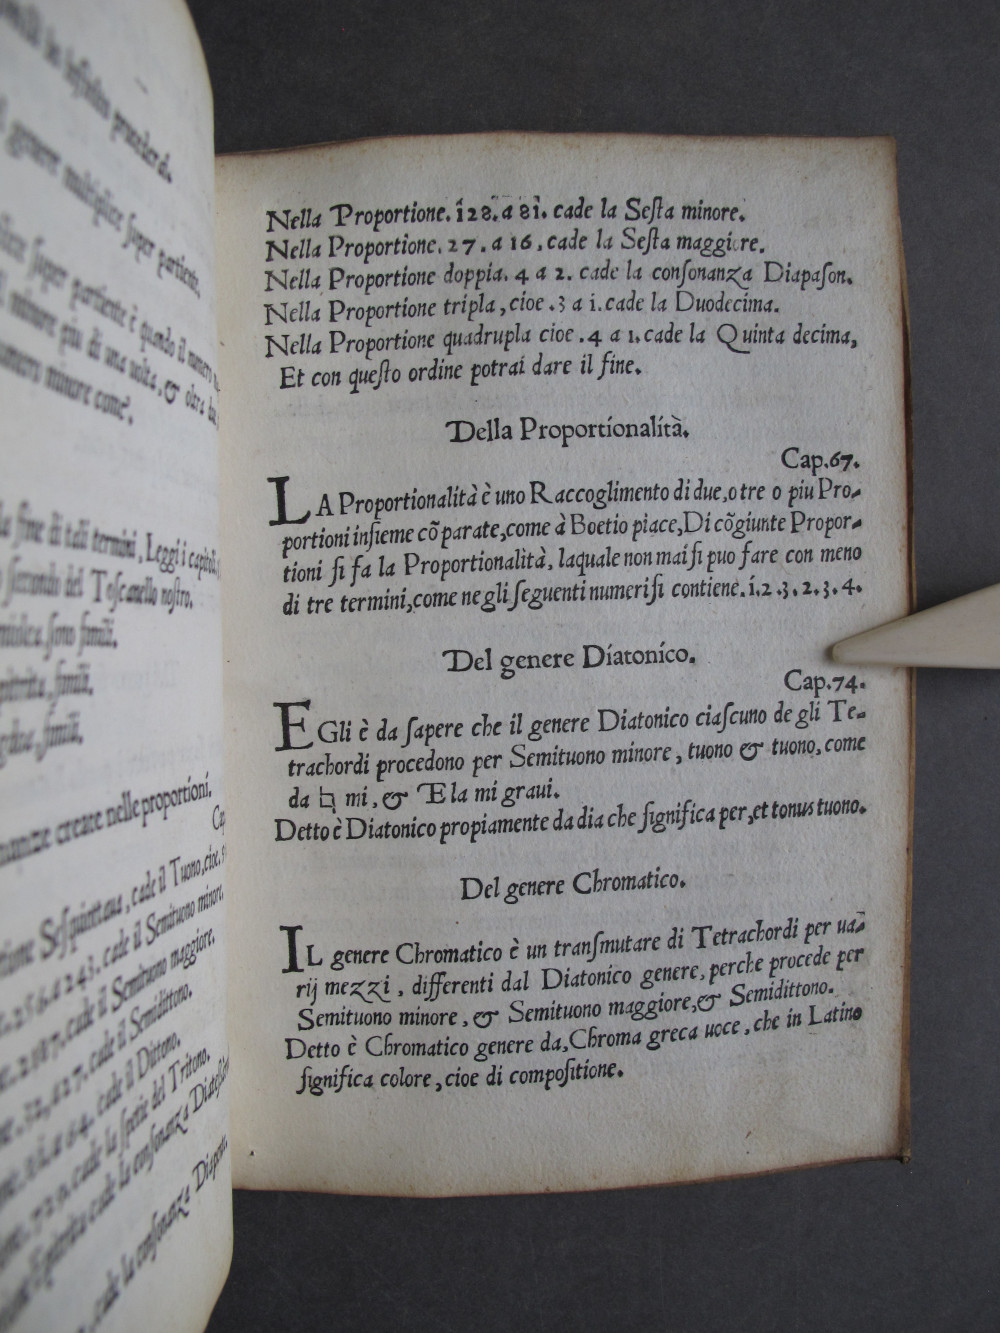 in infinito proceder di.
genere multiplice soper partiente.
soper partiente è quando il numero
minore piu di una uolta, & oltra
numero minore come.
fine di tali termini, Leggi i capitoli,
secondo del Toscanello nostro.
sono simili.
simili.
simili.
creare nelle proportioni.
Cap
cade il Tuono, cioe.
256. a 243. cade il Semituono minore.
2187. cade il Semituono maggiore.
32, a 27. cade il Semidittono.
a 64. cade il Dittono.
729. cade la spetie del Tritono.
cade la consonanza
cade la consonanza
Nella Proportione. i28. a 8i. cade la Seſta minore.
Nella Proportione. 27. a 16. cade la Seſta maggiore.
Nella Proportione doppia. 4 a 2. cade la conſonanza Diapaſon.
Nella Proportione tripla, cioe .3 a i. cade la Duodecima.
Nella Proportione quadrupla cioe .4 a i. cade la Quinta decima,
Et con queſto ordine potrai dare il fine.
Della Proportionalità.
Cap.67.
LA Proportionalità è uno Raccoglimento di due, o tre o piu Pro-
portioni inſieme cõparate, come à Boetio piace, Di cõgiunte Propor-
tioni ſi fa la Proportionalità, laquale non mai ſi puo fare con meno
di tre termini, come ne gli ſeguenti numeri ſi contiene. i.2.3.2.3.4.
Del genere Diatonico.
Cap.74.
EGli è da ſapere che il genere Diatonico ciaſcuno de gli Te-
trachordi procedono per Semituono minore, tuono & tuono, come
da ♮ mi, & E la mi graui.
Detto è Diatonico propiamente da dia che ſignifica per, et tonus tuono.
Del genere Chromatico.
IL genere Chromatico è un tranſmutare di Tetrachordi per ua-
rij mezzi, differenti dal Diatonico genere, perche procede per
Semituono minore, & Semituono maggiore, & Semidittono.
Detto è Chromatico genere da, Chroma greca uoce, che in Latino
ſignifica colore, cioe di compoſitione.